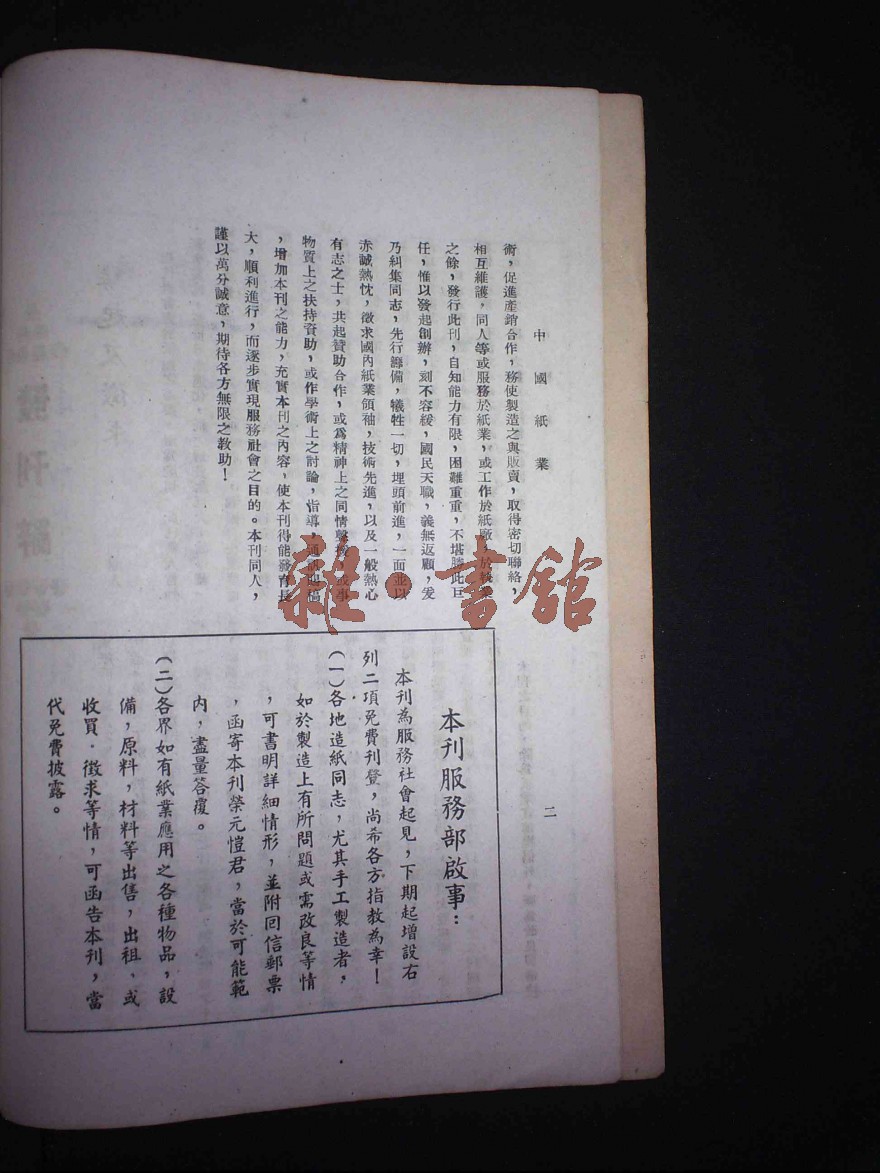 中國紙業
術，促進產銷合作，務使製造之與販賣，取得密切聯絡，
相互維護，同人等或服務於紙業，或工作於紙廠，於執業
之餘，發行此刊，自知能力有限，困難重重，不堪勝此巨
任，惟以發起創辦，刻不容緩，國民天職，義無返顧，爰
乃糾集同志，先行籌備，犧牲一切，埋頭前進，一面並以
赤誠熱忱，徵求國內紙業領袖，技術先進，以及一般熱心
有志之士，共起贊助合作，或為精神上之同情聲援，或事
物質上之扶持資助，或作學術上之討論，指導，通訊惠稿
，增加本刊之能力，充實本刊之內容，使本刊得能發育長
大，順利進行，而逐步實現服務社會之目的。本刊同人，
謹以萬分誠意，期待各方無限之教助！
雜·書館
本刊服務部啟事：
本刊為服務社會起見，下期起增設右
列二項免費刊登，尚希各方指教為幸！
(一)各地造紙同志，尤其手工製造者，
如於製造上有所問題或需改良等情
，可書明詳細情形，並附回信郵票
，函寄本刊榮元愷君，當於可能範
內，盡量答覆。
(二)各界如有紙業應用之各種物品，設
備，原料，材料等出售，出租，或
收買．徵求等情，可函告本刊，當
代免費披露。
二